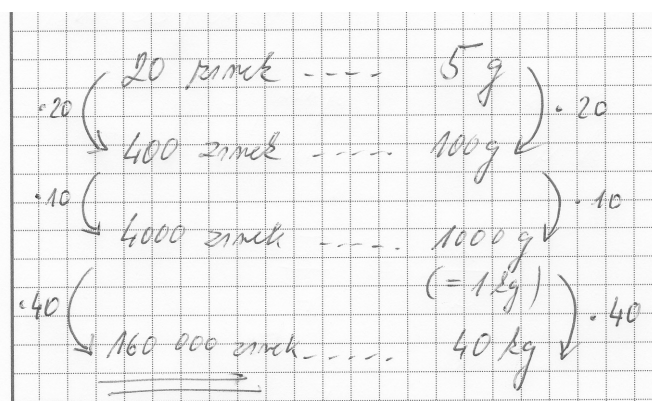 20 zrnek .... 5 g
·20 ·20
400 zrnek ..... 100 g
·10 ·10
4000 zrnek ..... 1000 g
(= 1 kg)
·40 ·40
160 000 zrnek ..... 40 kg